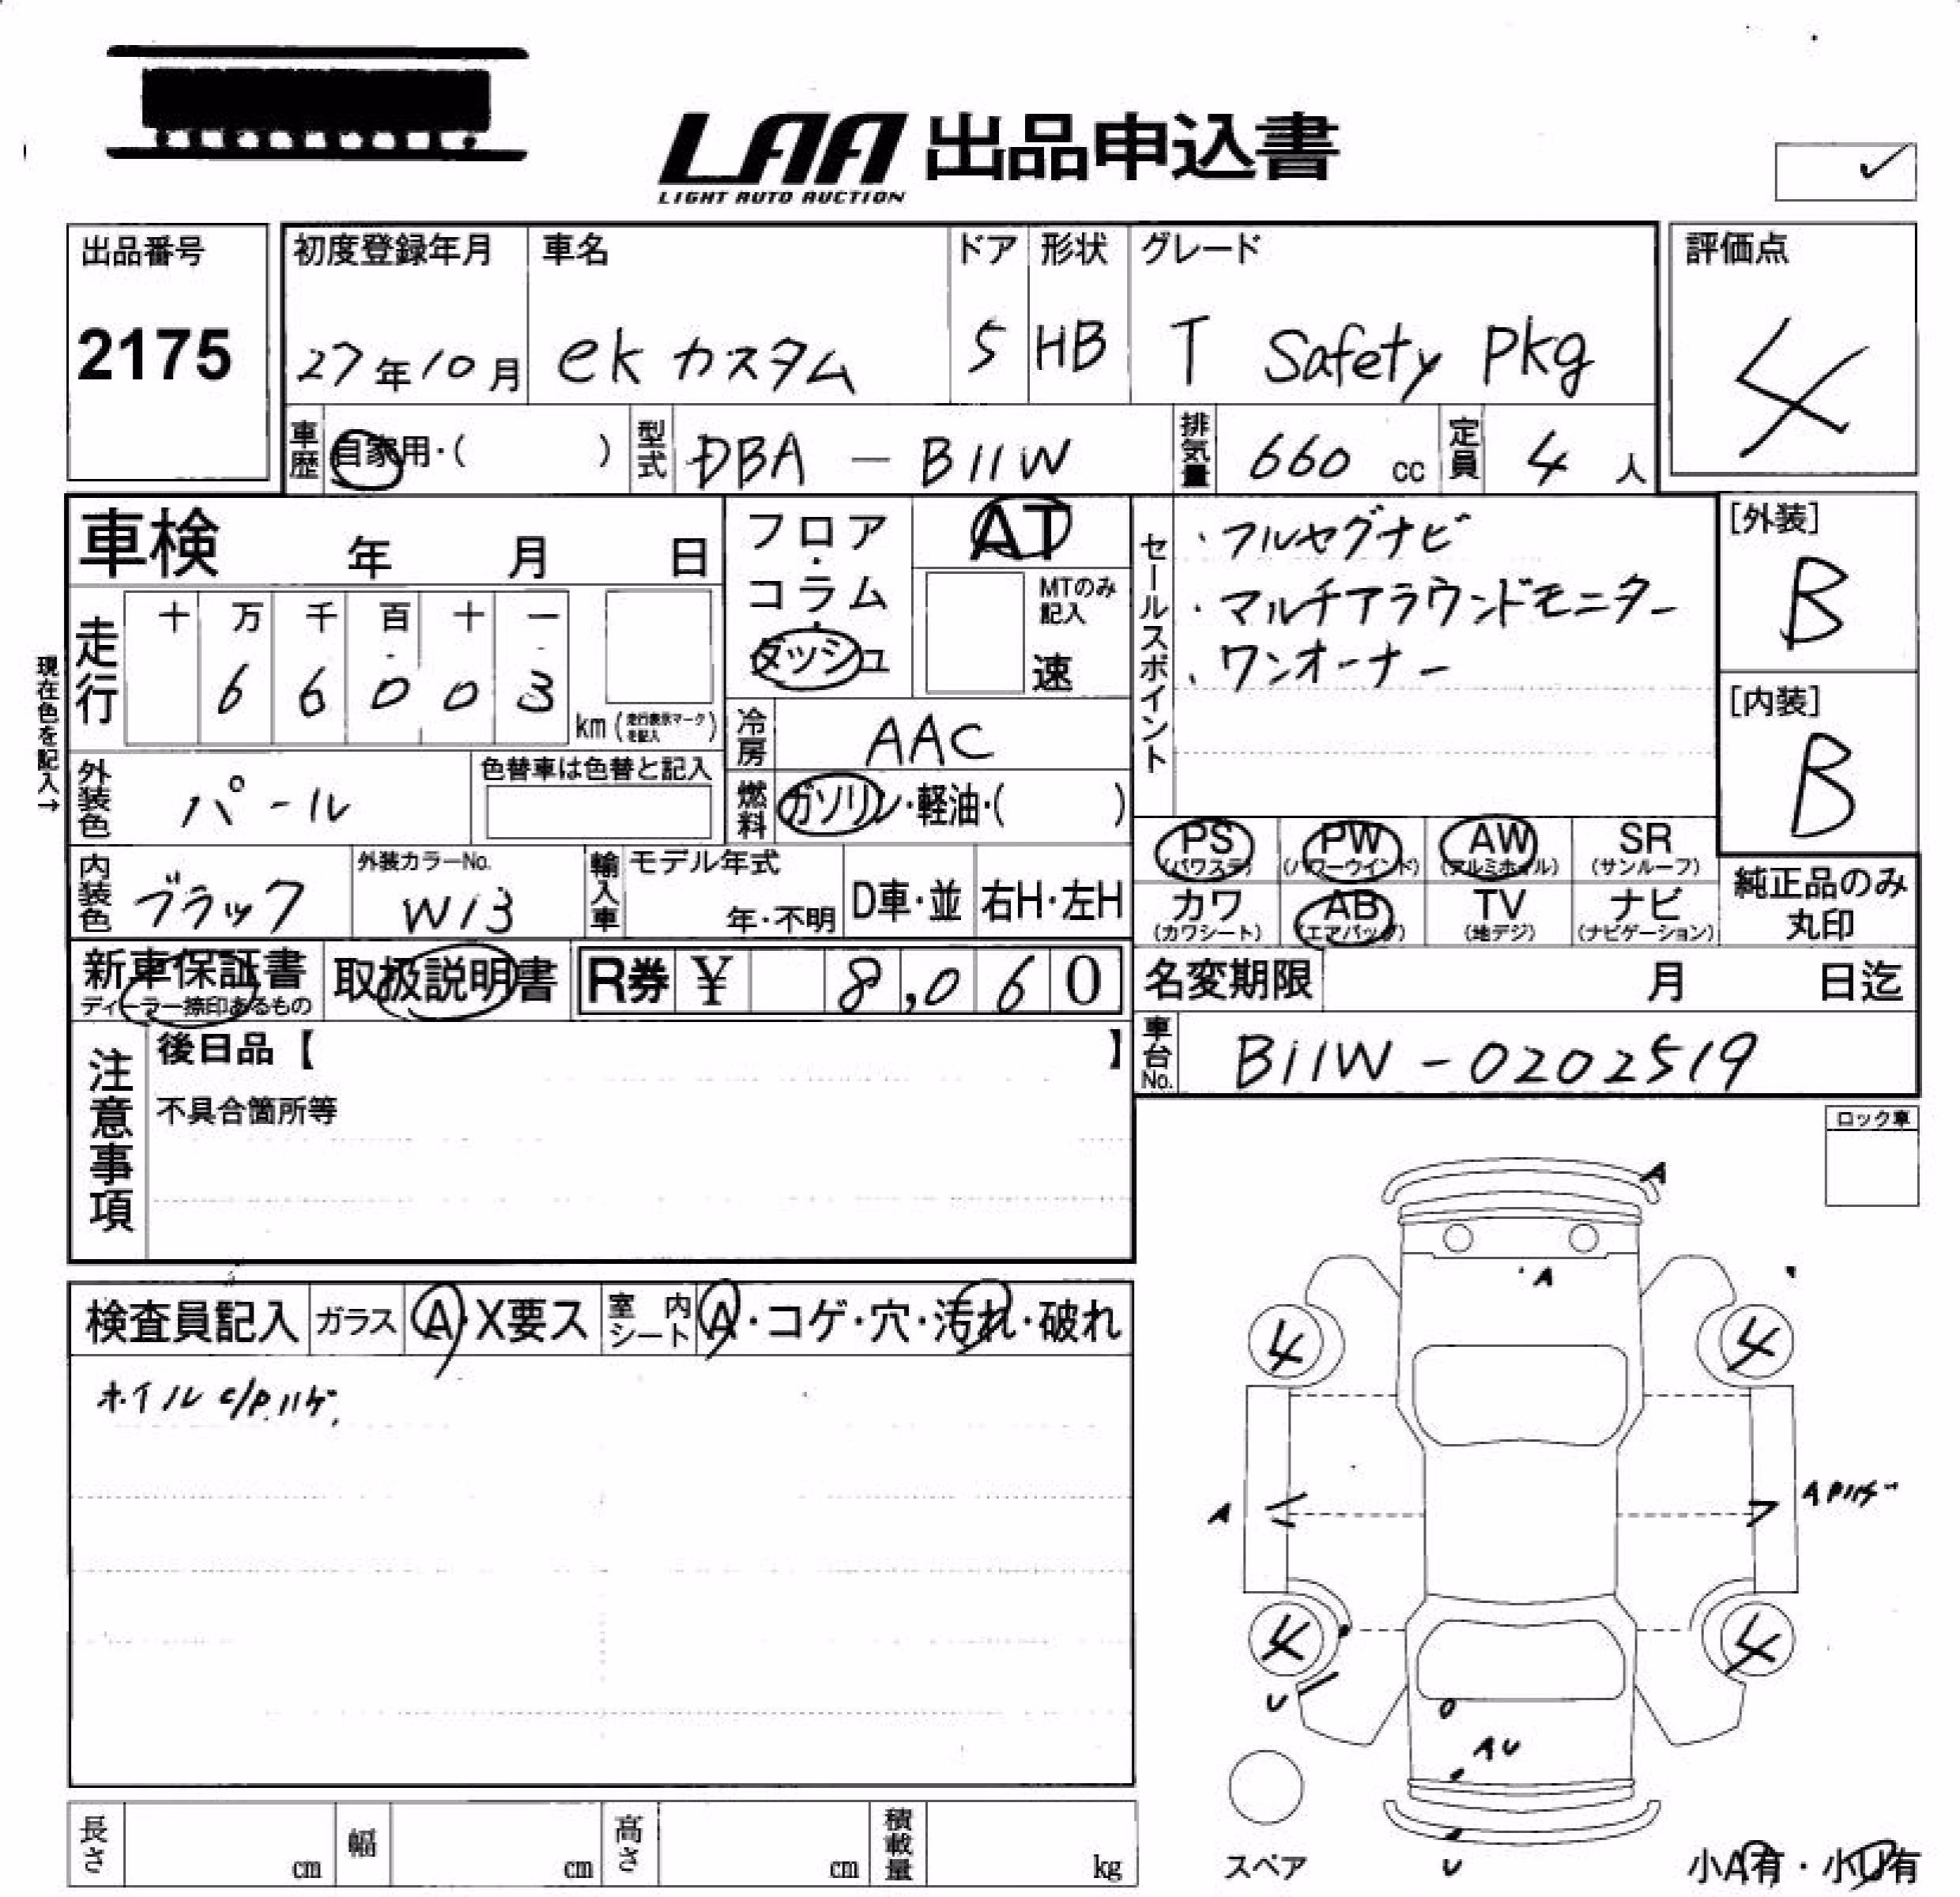 LAA 出品申込書
LIGHT AUTO AUCTION
出品番号
2175
初度登録年月
27年10月
車名
ek カスタム
ドア
5
形状
HB
グレード
T Safety Pkg
評価点
4
車歴
自家用・( )
型式
DBA - B11W
排気量
660 cc
定員
4 人
車検 年 月 日
現在色を記入→
走行
十 万 千 百 十 一
6 6 0 0 3
km (走行表示マークを記入)
フロア・コラム・ダッシュ
AT
MTのみ記入
速
冷房
AAC
燃料
ガソリン・軽油・( )
セールスポイント
・フルセグナビ
・マルチアラウンドモニター
・ワンオーナー
[外装]
B
[内装]
B
外装色
パール
色替車は色替と記入
内装色
ブラック
外装カラーNo.
W13
輸入車
モデル年式
年・不明
D車・並
右H・左H
PS (パワステ)
PW (パワーウインド)
AW (アルミホイル)
SR (サンルーフ)
カワ (カワシート)
AB (エアバッグ)
TV (地デジ)
ナビ (ナビゲーション)
純正品のみ丸印
新車保証書
ディーラー捺印あるもの
取扱説明書
R券 ¥ 8,060
名変期限 月 日迄
車台No.
B11W - 0202519
注意事項
後日品【 】
不具合箇所等
ロック車
検査員記入
ガラス
A・X要ス
室内シート
A・コゲ・穴・汚れ・破れ
ホイル c/P.ハゲ
A
A
4
4
A
A Pハゲ
4
4
U
AU
U
スペア
小A有・小U有
長さ cm
幅 cm
高さ cm
積載量 kg